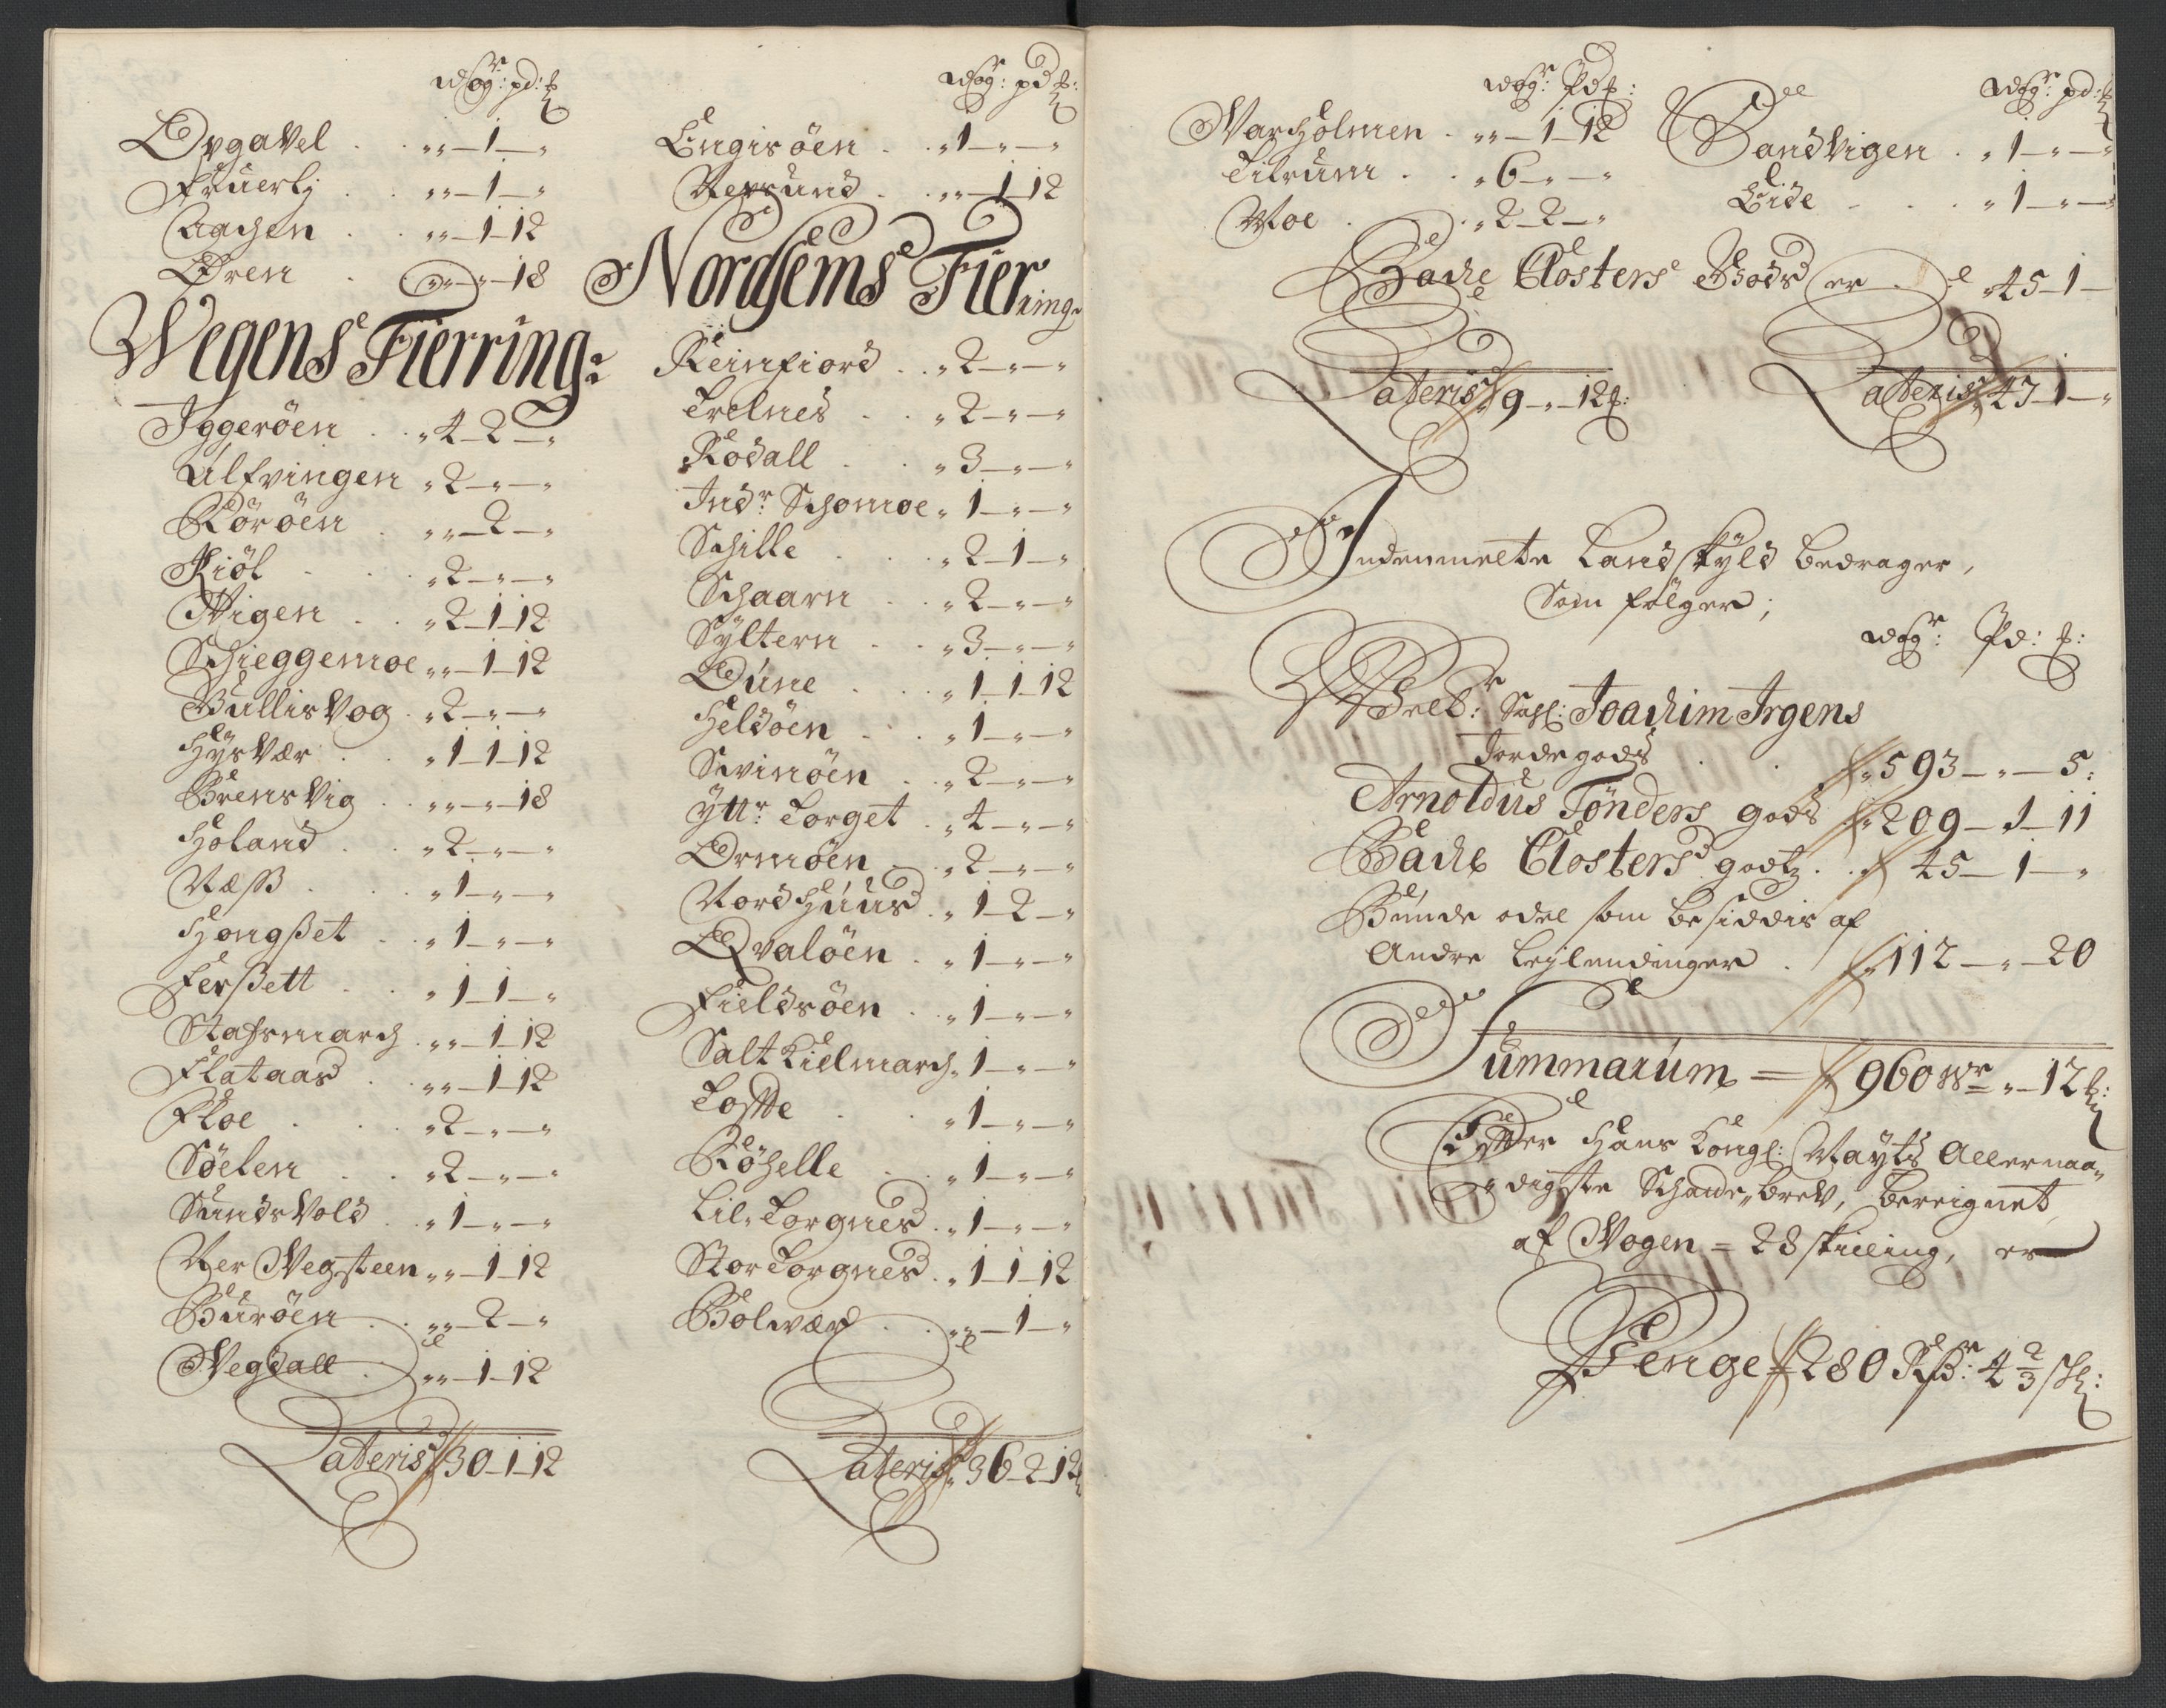 Wogr: pd: ℔
Qvgavel . . „„ – 1 – „
Fruerlj . . „„ – 1 – „
Aachen . . „„ – 1 – 12
Øren . „ – „ – 18
Wegens Fierring:
Iggeröen . . „ 4 – 2 – „
Ulfvingen „ 2 – „ – „
Röröen . „„ – 2 – „
Kiöl . . „ 2 – „ – „
Wigen . . „ 2 – 1 – 12
Schieggemoe „„ – 1 – 12
Bullisvog . „ 2 – „ – „
Hysvær . . „ 1 – 1 – 12
Brensvig . „„ – „ – 18
Höland . . „ 2 – „ – „
Næss . . „ 1 – „ – „
Hongßet . . „ 1 – „ – „
Ferßett . . „ 1 – 1 – „
Stafsmarch . „„ – 1 – 12
Flataas . „„ – 1 – 12
Floe . . „ 2 – „ – „
Söelen . . „ 2 – „ – „
Sundsvold . „ 1 – „ – „
Ner Wegsteen „„ – 1 – 12
Buröen . . „„ – 2 – „
Wegdall . „„ – 1 – 12
Lateris 30 – 1 – 12
Wogr: pd ℔:
Engisöen . . „ 1 – „ – „
Nersund . . „„ – 1 – 12
Nordhems Fierring:
Reinfiord . . „ 2 – „ – „
Trelnes . . „ 2 – „ – „
Rödall . . „ 3 – „ – „
Indr: Schomoe „ 1 – „ – „
Schille . . „ 2 – 1 – „
Schaarn . . „ 2 – „ – „
Syltern . . „ 3 – „ – „
Dúne . . „ 1 – 1 – 12
Heldöen . . „ 1 – „ – „
Svinöen . . „ 2 – „ – „
Yttr: Torget . „ 4 – „ – „
Ormöen . . „ 2 – „ – „
Nordhuus . „ 1 – 2 – „
Qvalöen . . „ 1 – „ – „
Fieldsöen . . „ 1 – „ – „
Salt Kielmarch „ 1 – „ – „
Tofte . . „ 1 – „ – „
Röhelle . . „ 1 – „ – „
Lil. Torgnes . „ 1 – „ – „
Stor Torgnes . „ 1 – 1 – 12
Bolvær . . „„ – 1 – „
Lateris „ 36 – 2 – 12
Wogr: Pd ℔:
Warholmen . „„ – 1 – 12
Tilrum . . „ 6 – „ – „
Moe . . „ 2 – 2 – „
Wogr: pd: ℔
Sandvigen . „ 1 – „ – „
Eide . . „ 1 – „ – „
Backe Closters Gods er . „ 45 – 1 –
Lateris 9 – „ – 12 ℔:
Lateris 47 – 1 – „
Indenmelte Landskyld bedrager,
Som følger;
Wogr: Pd: ℔:
Sahl: Joachim Irgens
Jordegods . . „ 593 – „ – 5:
Arnoldus Tönders gods „ 209 – 1 – 11
Backe Closters godtz . . 45 – 1 – „
Bunde odel som besiddis af
Andre Leylendinger . „ 112 – „ – 20
Summarum = 960 Wr „ – 12 ℔:
Efter Hans Kongl: Mayts Allernaa„
„digste Schade„brev, bereignet
af Wogen = 28 skilling, er
Penge 280 Rdr: 4 2/3 sk: